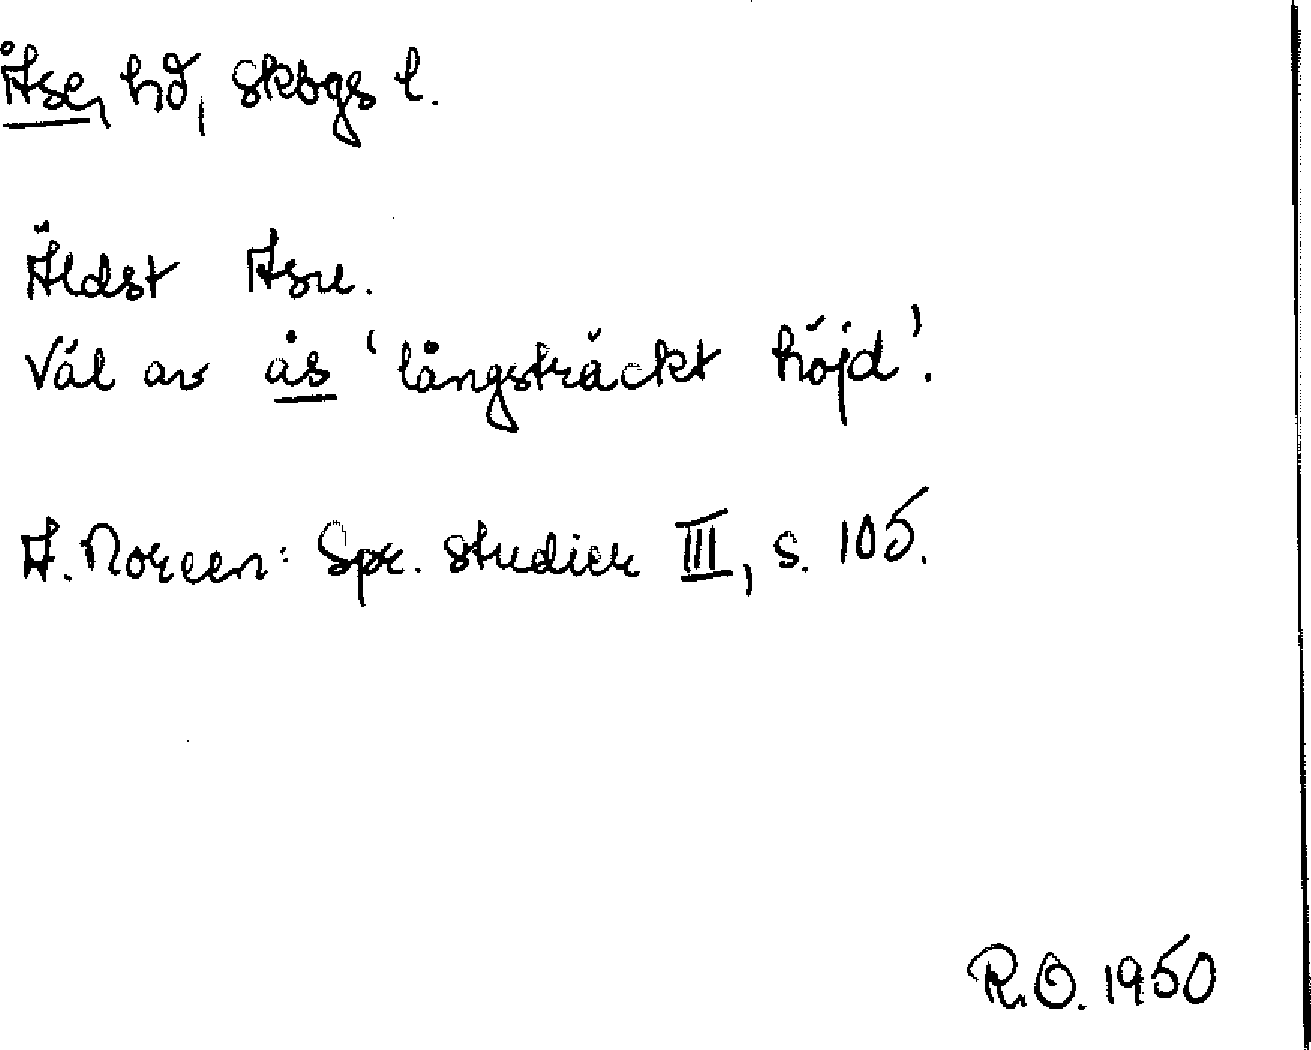 Åse, hd, skogs l.
Äldst Asu.
Väl av ås 'långsträckt höjd'.
A. Noreen: Spr. studier III, s. 105.
R.O. 1950